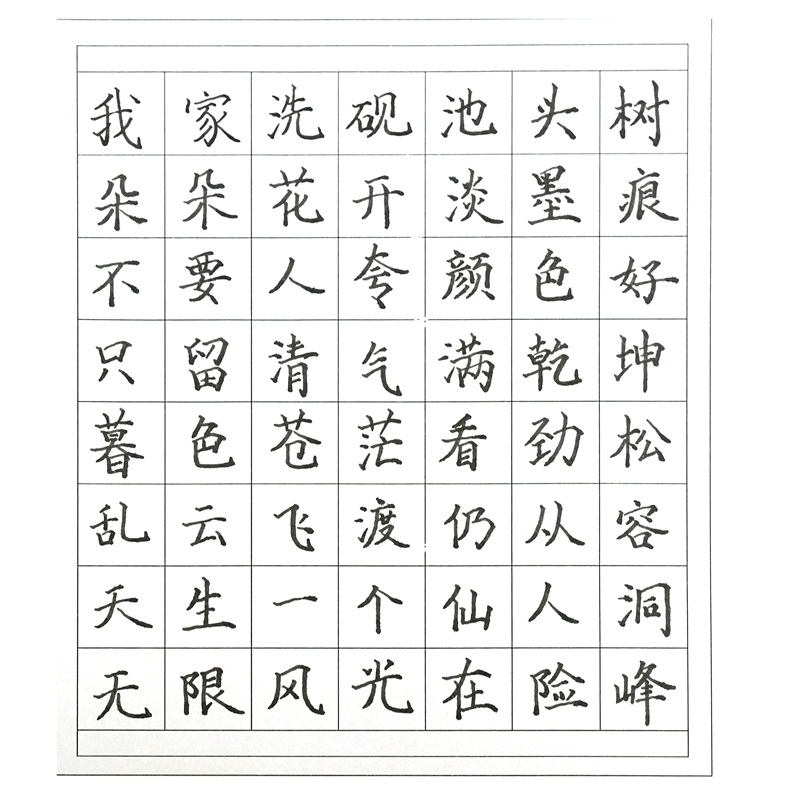 我家洗砚池头树
朵朵花开淡墨痕
不要人夸颜色好
只留清气满乾坤
暮色苍茫看劲松
乱云飞渡仍从容
天生一个仙人洞
无限风光在险峰